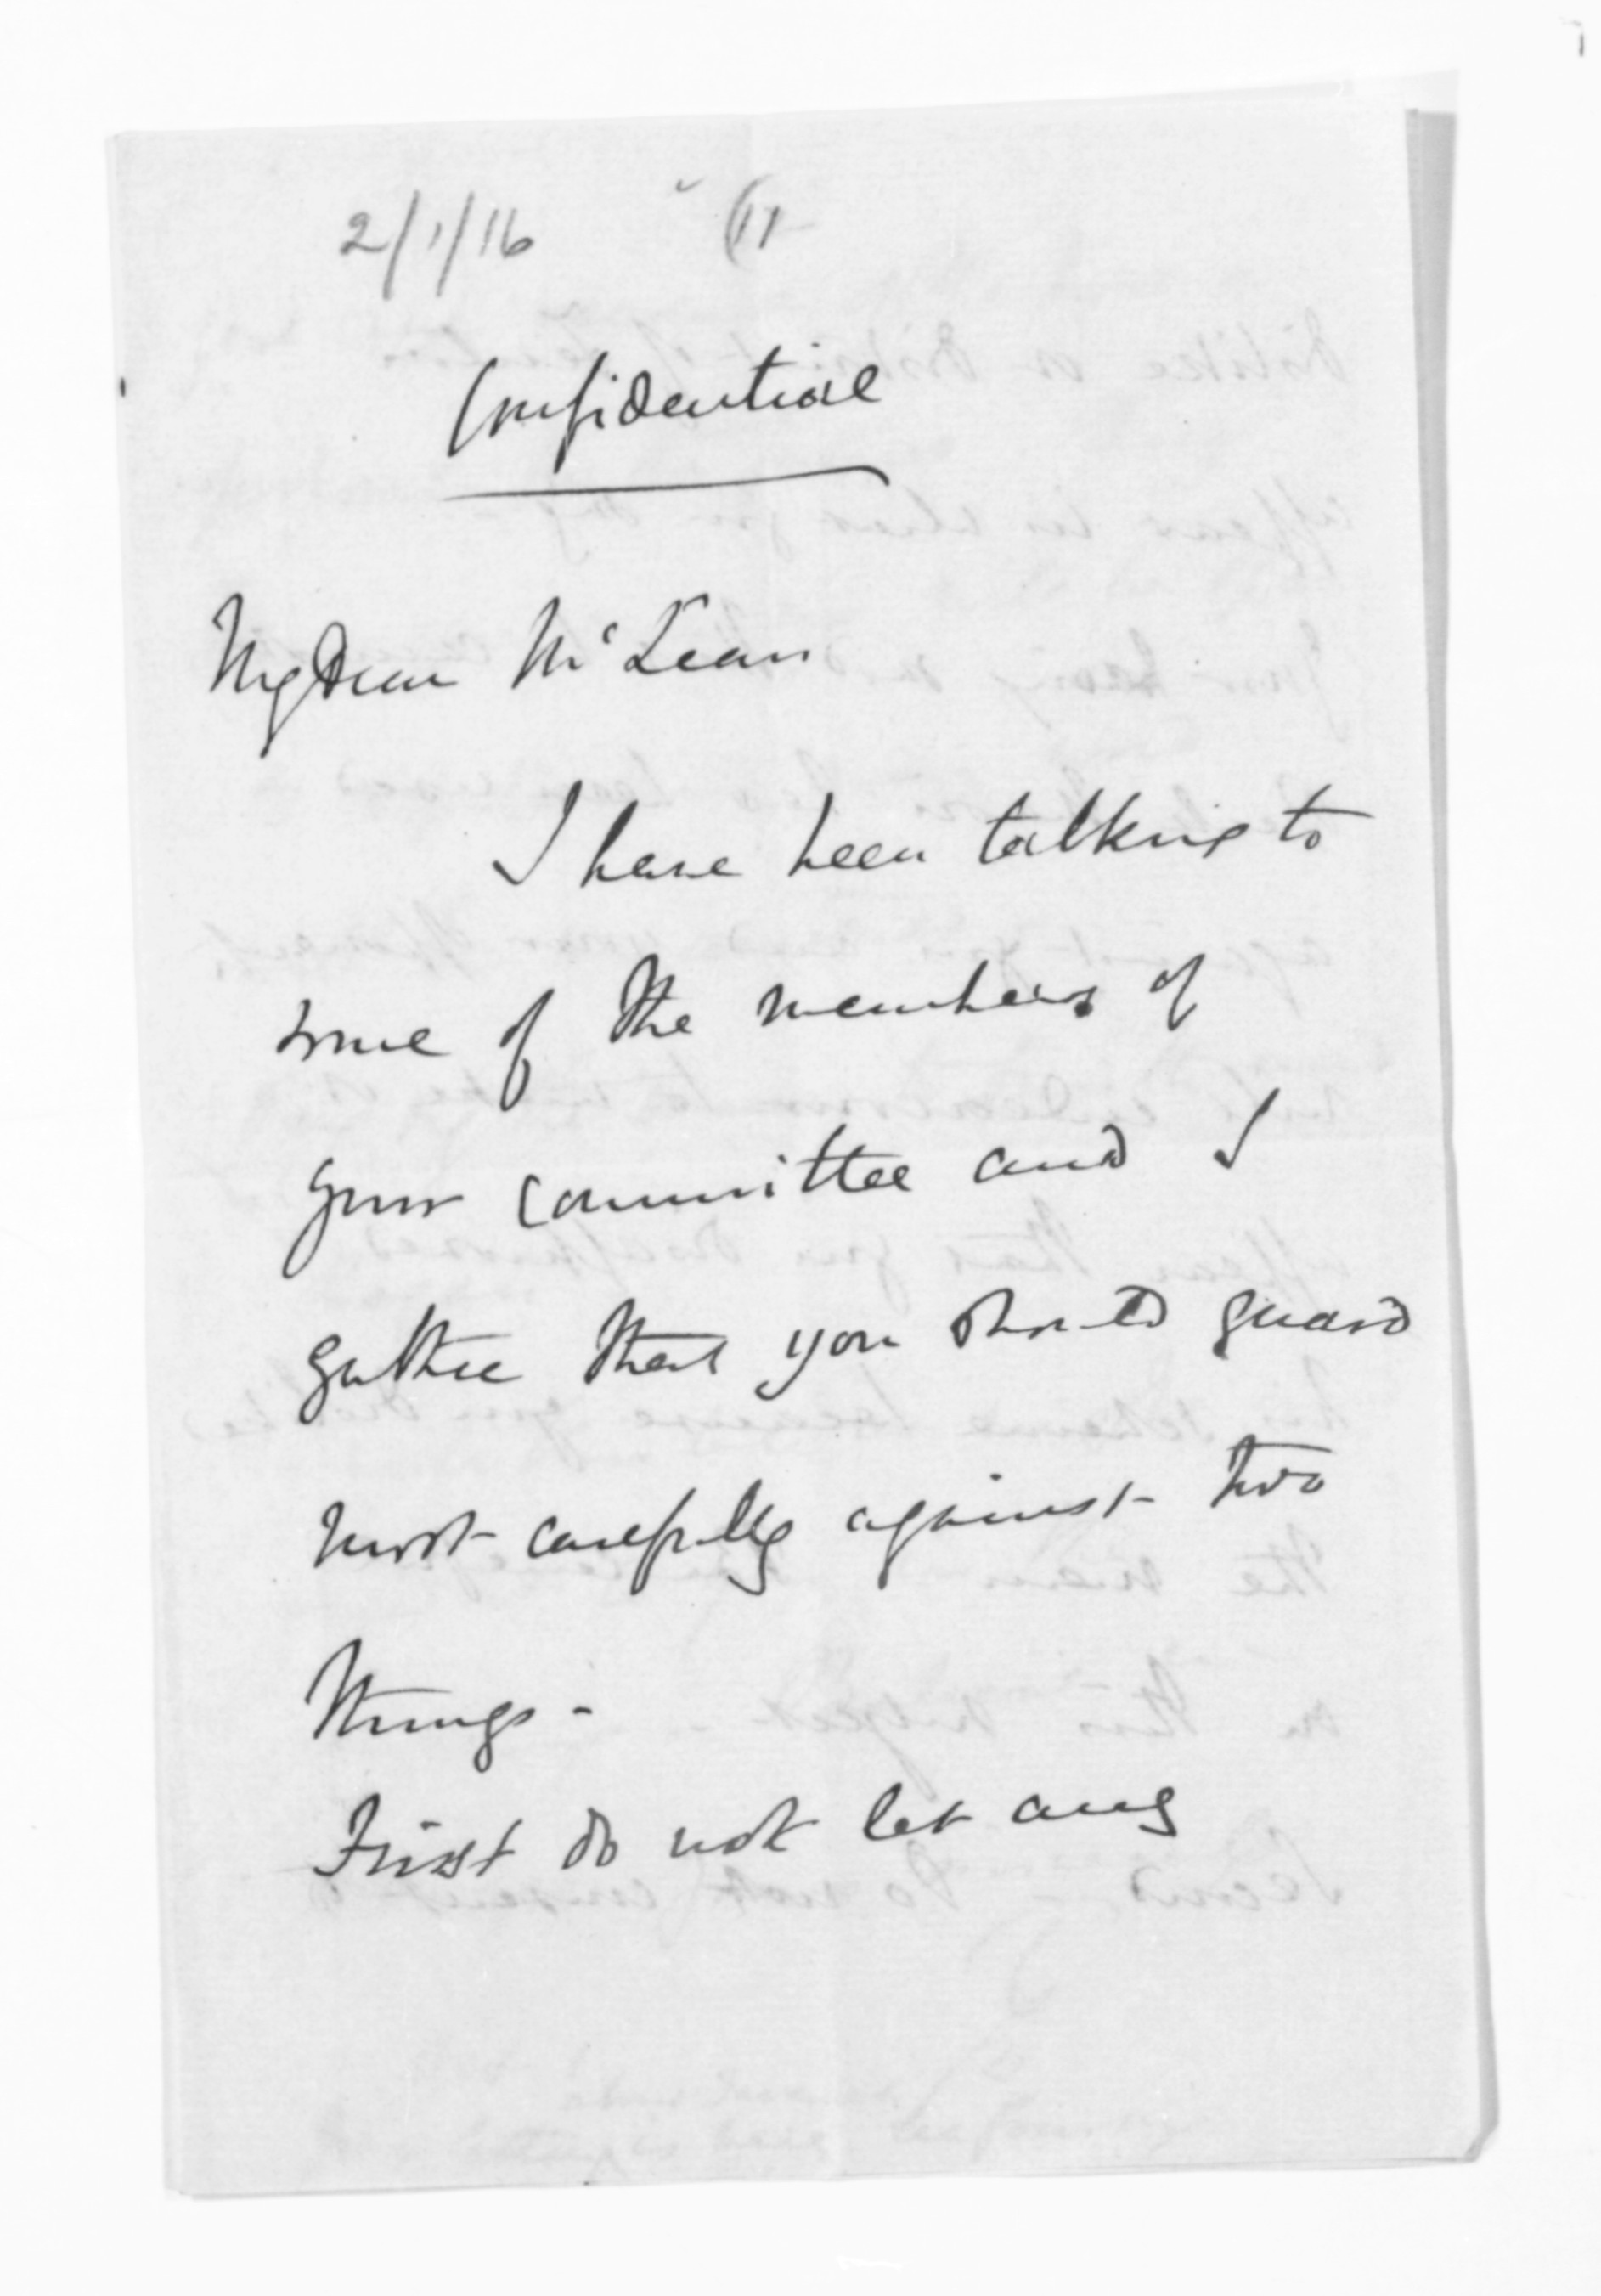 2/1/16
Confidential
My Dear McLean
I have been talking to
some of the members of
your committee and I
gather that you should guard
most carefully against two
things -
First do not let any